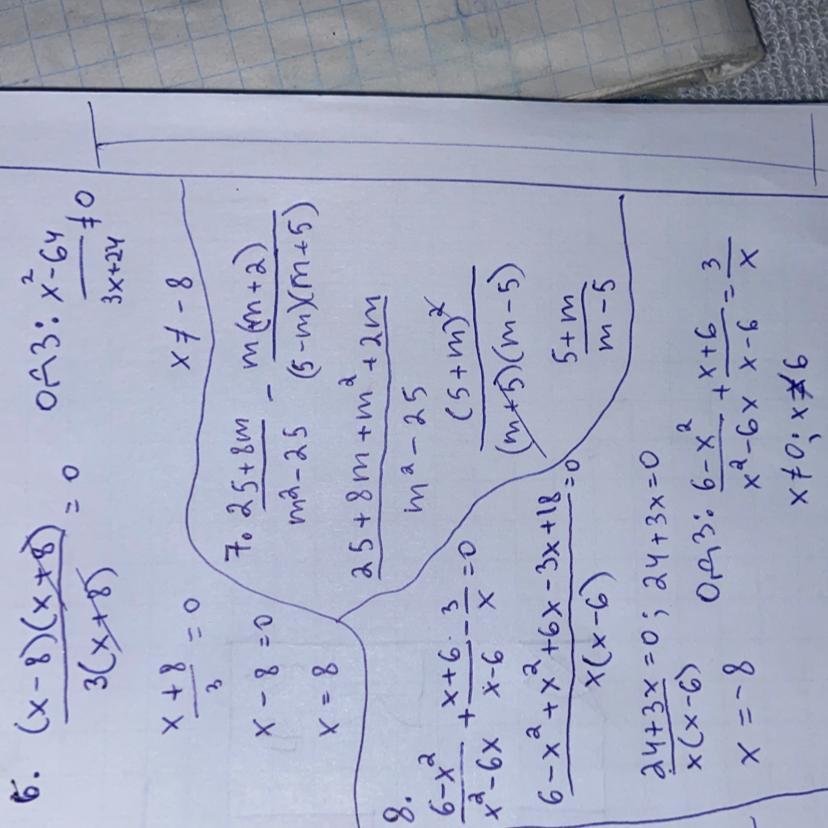 6. (x-8)(x+8)/3(x+8) = 0 ОДЗ: x²-64/3x+24 ≠ 0
x+8/3 = 0 x ≠ -8
x - 8 = 0
x = 8
7. 25+8m/m²-25 - m(m+2)/(5-m)(m+5)
25+8m+m²+2m/m²-25
(5+m)²/(m+5)(m-5)
5+m/m-5
8.
6-x²/x²-6x + x+6/x-6 - 3/x = 0
6-x²+x²+6x-3x+18/x(x-6) = 0
24+3x/x(x-6) = 0; 24+3x=0
x = -8 ОДЗ: 6-x²/x²-6x + x+6/x-6 = 3/x
x≠0; x≠6